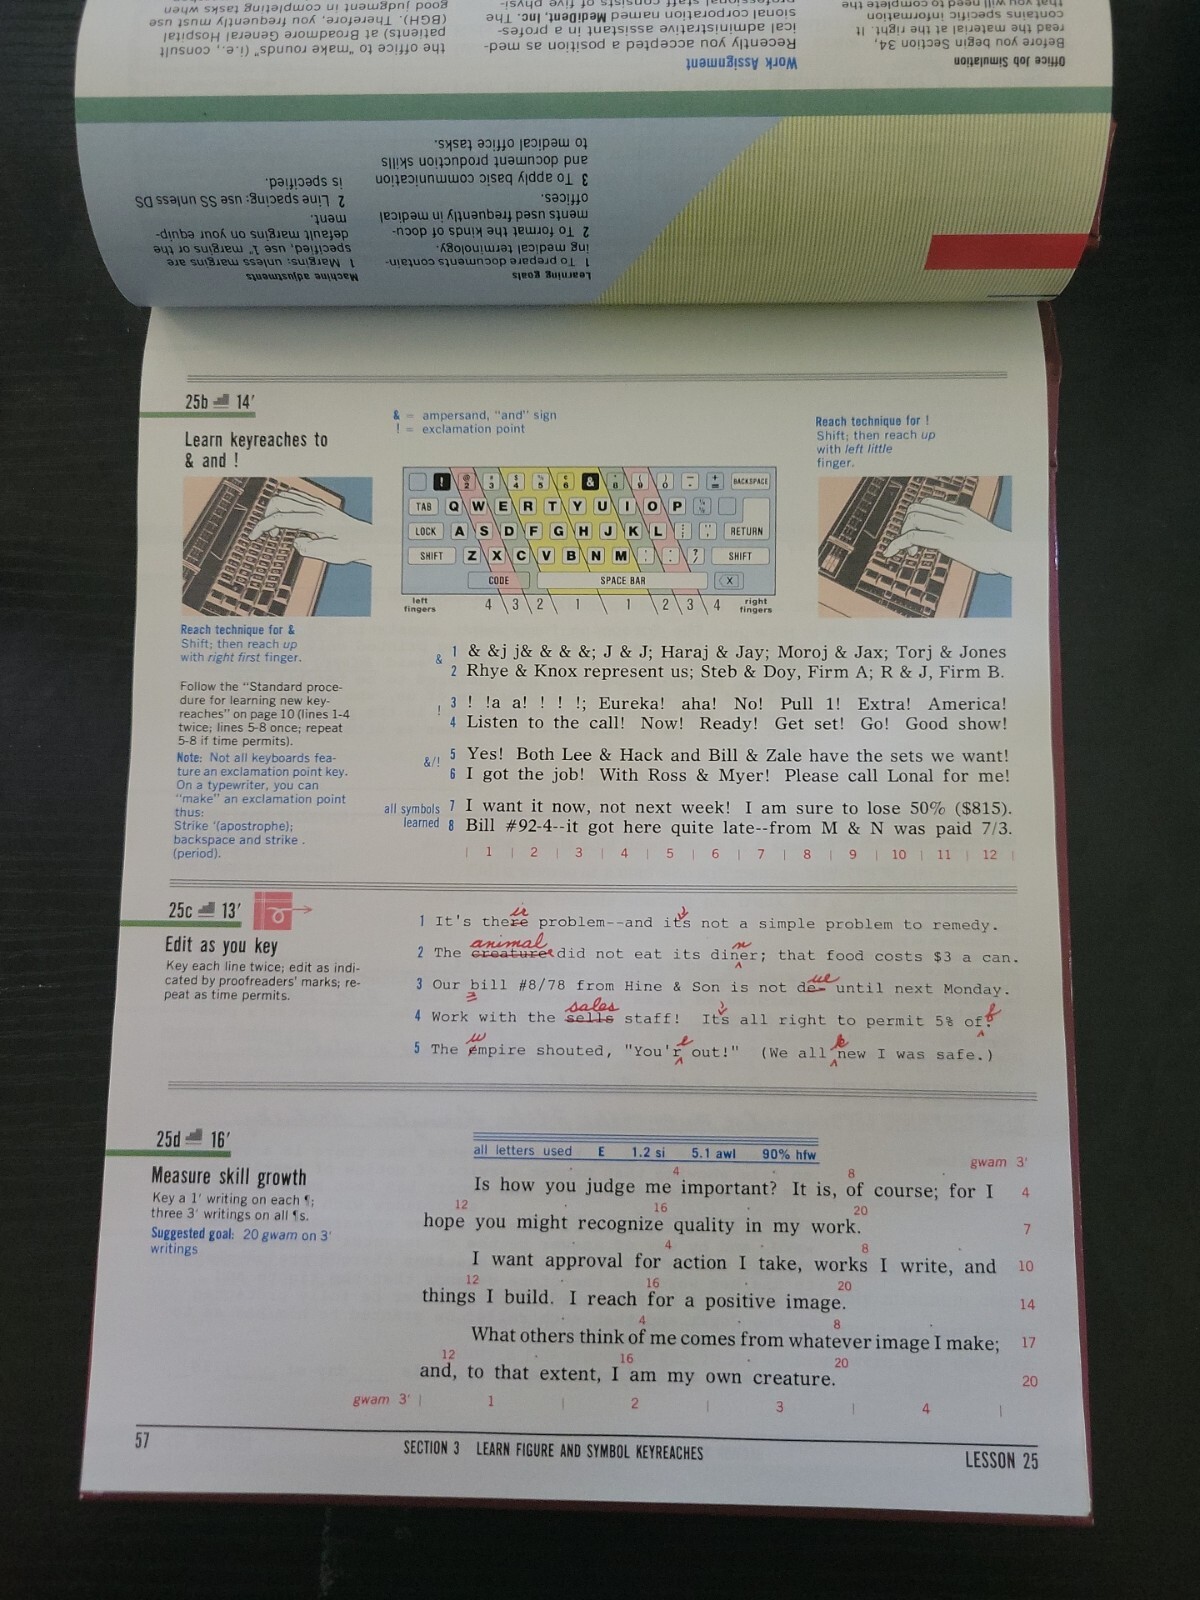 the office to "make rounds" (i.e., consult
patients) at Broadmore General Hospital
(BGH). Therefore, you frequently must use
good judgment in completing tasks when
Work Assignment
Recently you accepted a position as med-
ical administrative assistant in a profes-
sional corporation named MediDent, Inc. The
professional staff consists of five physi-
Office Job Simulation
Before you begin Section 34,
read the material at the right. It
contains specific information
that you will need to complete the
Machine adjustments
1 Margins: unless margins are
specified, use 1" margins or the
default margins on your equip-
ment.
2 Line spacing: use SS unless DS
is specified.
Learning goals
1 To prepare documents contain-
ing medical terminology.
2 To format the kinds of docu-
ments used frequently in medical
offices.
3 To apply basic communication
and document production skills
to medical office tasks.
25b 14'
Learn keyreaches to
& and !
& = ampersand, "and" sign
! = exclamation point
Reach technique for !
Shift; then reach up
with left little
finger.
! @ 2 # 3 $ 4 % 5 ¢ 6 & * 8 ( 9 ) 0 - + = BACKSPACE
TAB Q W E R T Y U I O P
LOCK A S D F G H J K L : ; RETURN
SHIFT Z X C V B N M , . ? / SHIFT
CODE SPACE BAR X
left fingers 4 3 2 1 1 2 3 4 right fingers
Reach technique for &
Shift; then reach up
with right first finger.
Follow the "Standard proce-
dure for learning new key-
reaches" on page 10 (lines 1-4
twice; lines 5-8 once; repeat
5-8 if time permits).
Note: Not all keyboards fea-
ture an exclamation point key.
On a typewriter, you can
"make" an exclamation point
thus:
Strike '(apostrophe);
backspace and strike .
(period).
& 1 & &j j& & & &; J & J; Haraj & Jay; Moroj & Jax; Torj & Jones
2 Rhye & Knox represent us; Steb & Doy, Firm A; R & J, Firm B.
! 3 ! !a a! ! ! !; Eureka! aha! No! Pull 1! Extra! America!
4 Listen to the call! Now! Ready! Get set! Go! Good show!
&/! 5 Yes! Both Lee & Hack and Bill & Zale have the sets we want!
6 I got the job! With Ross & Myer! Please call Lonal for me!
all symbols learned 7 I want it now, not next week! I am sure to lose 50% ($815).
8 Bill #92-4--it got here quite late--from M & N was paid 7/3.
| 1 | 2 | 3 | 4 | 5 | 6 | 7 | 8 | 9 | 10 | 11 | 12 |
25c 13'
Edit as you key
Key each line twice; edit as indi-
cated by proofreaders' marks; re-
peat as time permits.
ir
1 It's there problem--and it's not a simple problem to remedy.
animal n
2 The creature did not eat its diner; that food costs $3 a can.
ue
3 Our bill #8/78 from Hine & Son is not de- until next Monday.
sales f
4 Work with the sells staff! It's all right to permit 5% of.
u e k
5 The empire shouted, "You'r out!" (We all new I was safe.)
25d 16'
Measure skill growth
Key a 1' writing on each ¶;
three 3' writings on all ¶s.
Suggested goal: 20 gwam on 3'
writings
all letters used E 1.2 si 5.1 awl 90% hfw
gwam 3'
4 8
Is how you judge me important? It is, of course; for I 4
12 16 20
hope you might recognize quality in my work. 7
4 8
I want approval for action I take, works I write, and 10
12 16 20
things I build. I reach for a positive image. 14
4 8
What others think of me comes from whatever image I make; 17
12 16 20
and, to that extent, I am my own creature. 20
gwam 3' | 1 | 2 | 3 | 4 |
57
SECTION 3 LEARN FIGURE AND SYMBOL KEYREACHES
LESSON 25